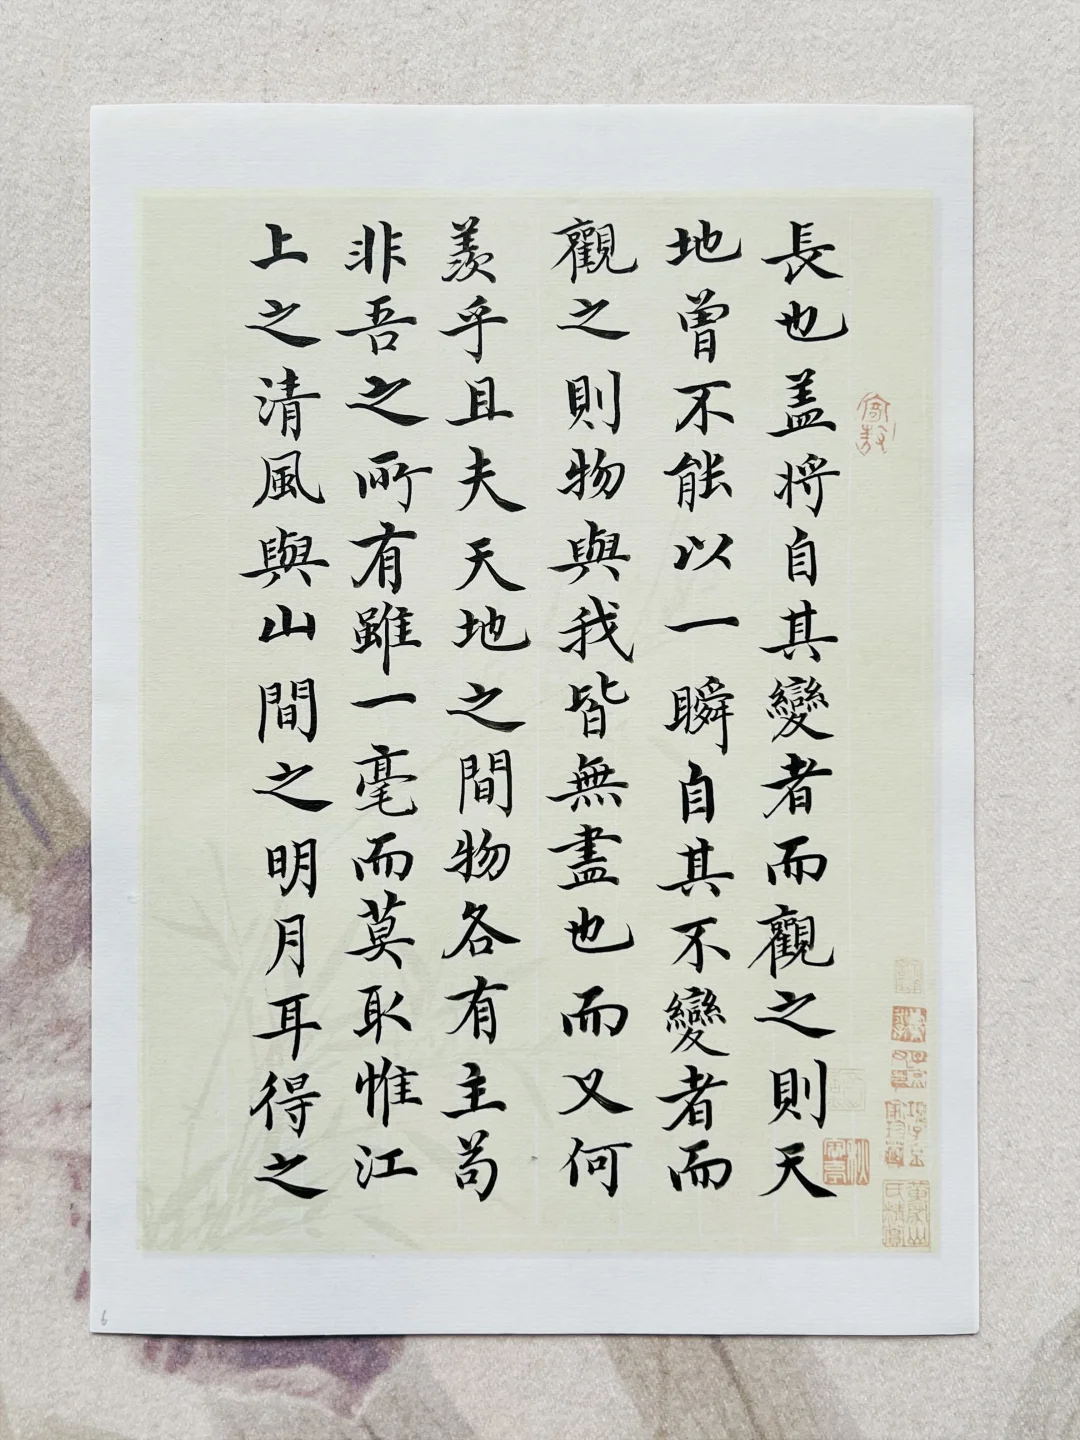 長也盖将自其變者而觀之則天
地曾不能以一瞬自其不變者而
觀之則物與我皆無盡也而又何
羡乎且夫天地之間物各有主苟
非吾之所有雖一毫而莫取惟江
上之清風與山間之明月耳得之
6